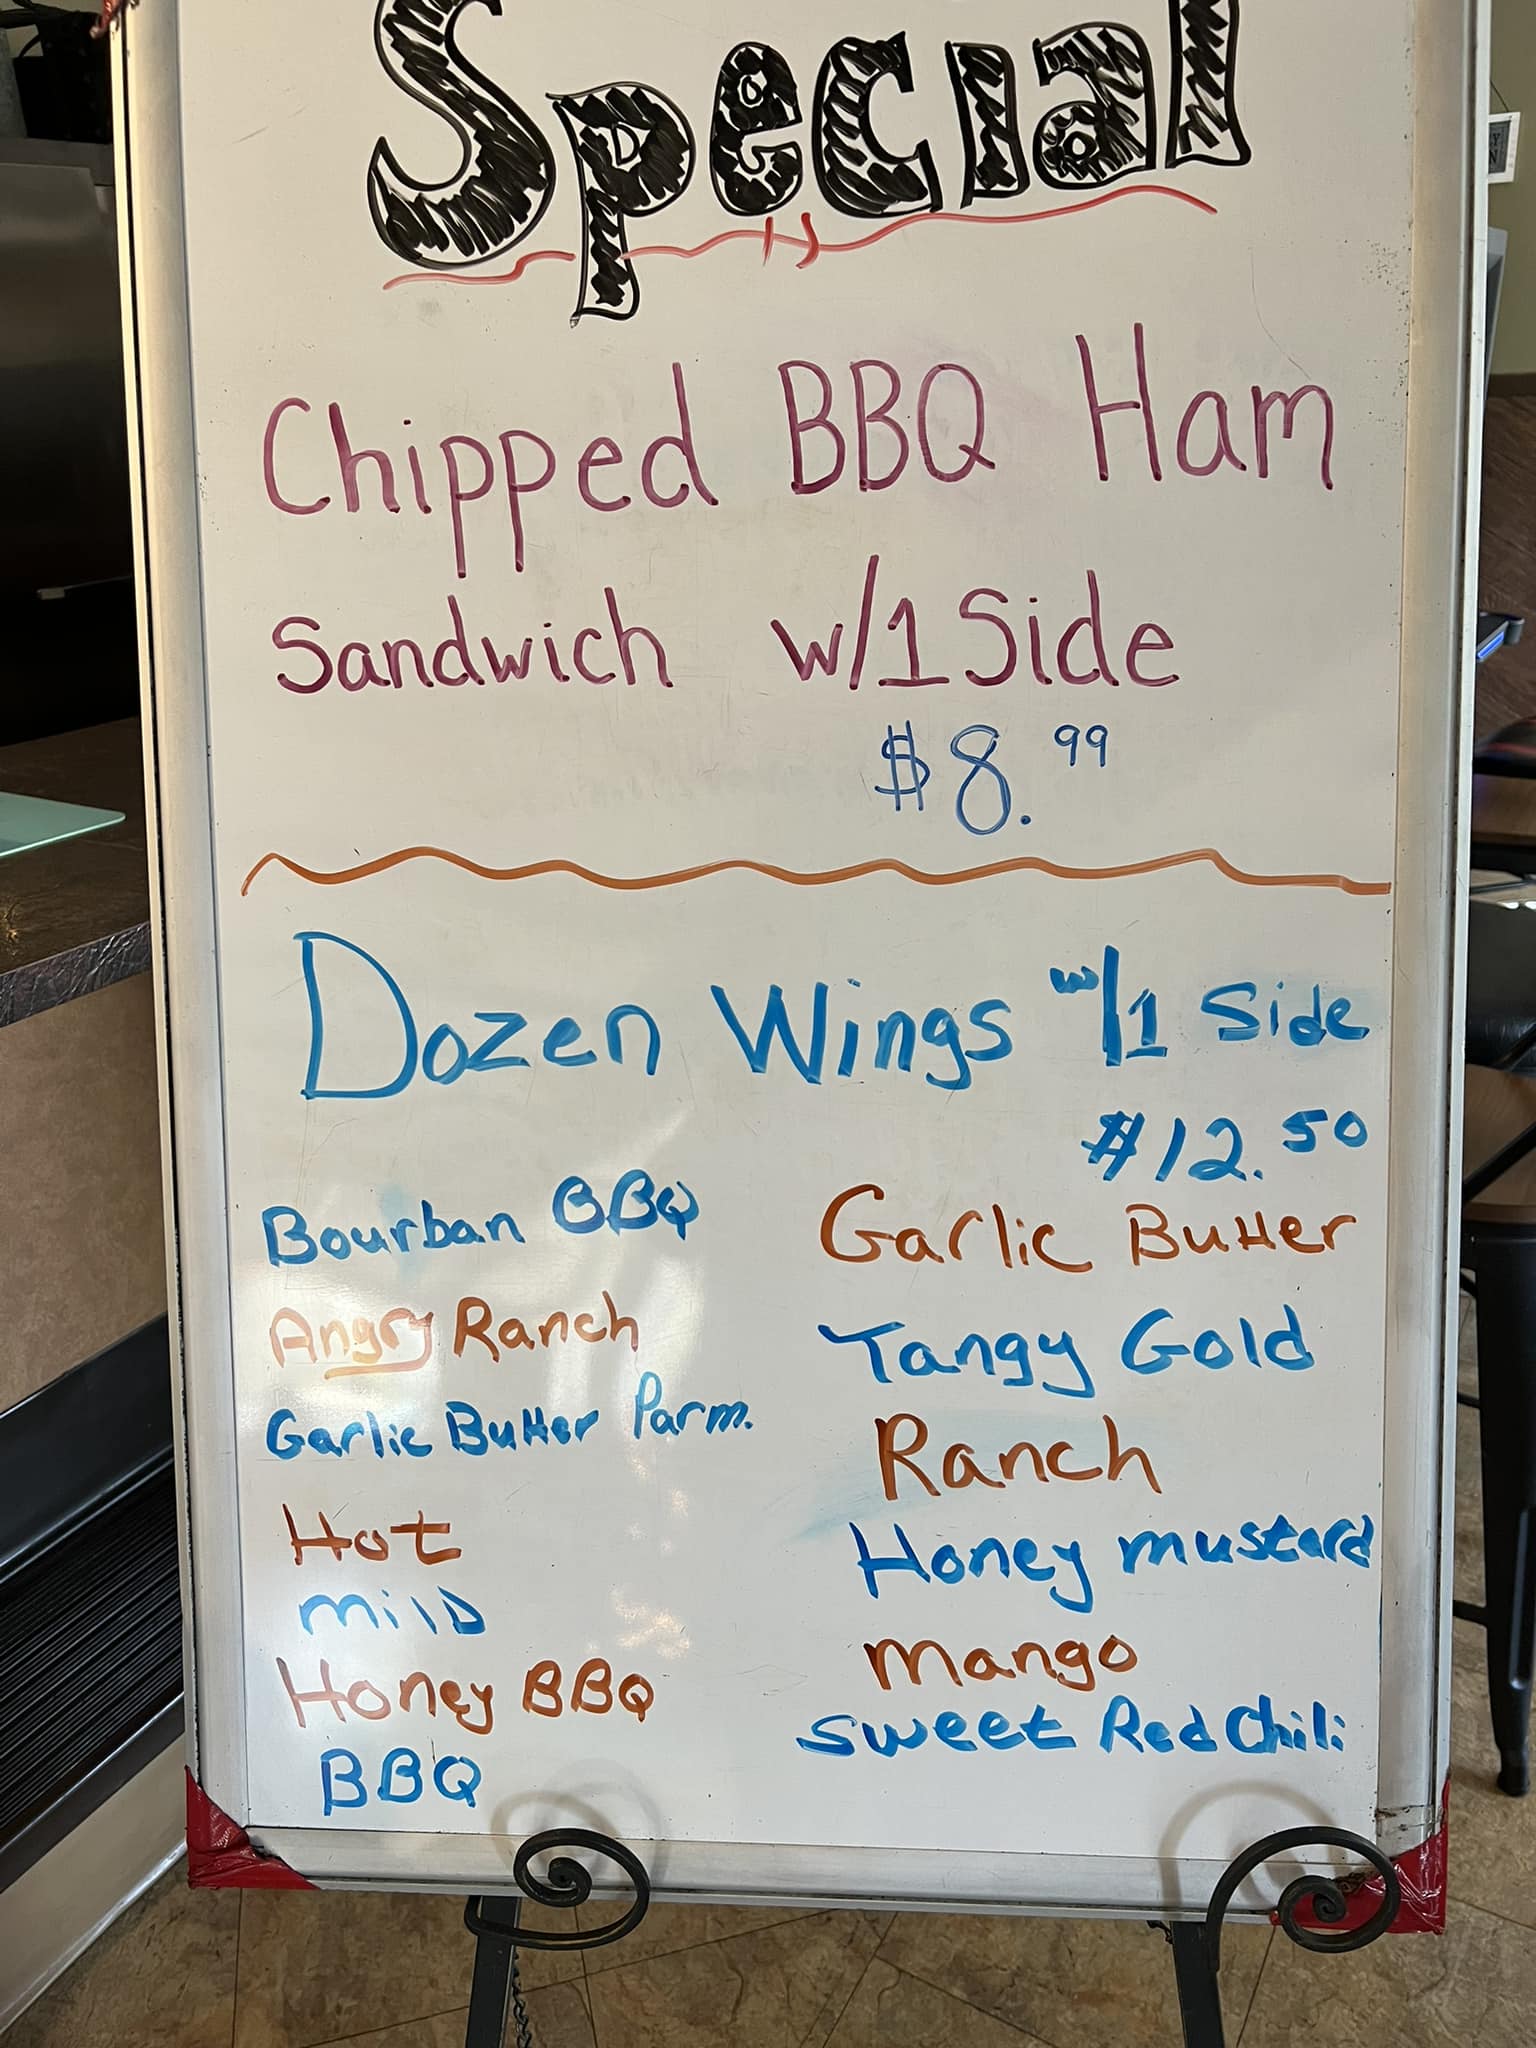 Special
Chipped BBQ Ham
Sandwich w/1 Side
$8.99
Dozen Wings w/1 Side
$12.50
Bourban BBQ
Angry Ranch
Garlic Butter Parm.
Hot
milD
Honey BBQ
BBQ
Garlic Butter
Tangy Gold
Ranch
Honey mustard
mango
sweet Red Chili